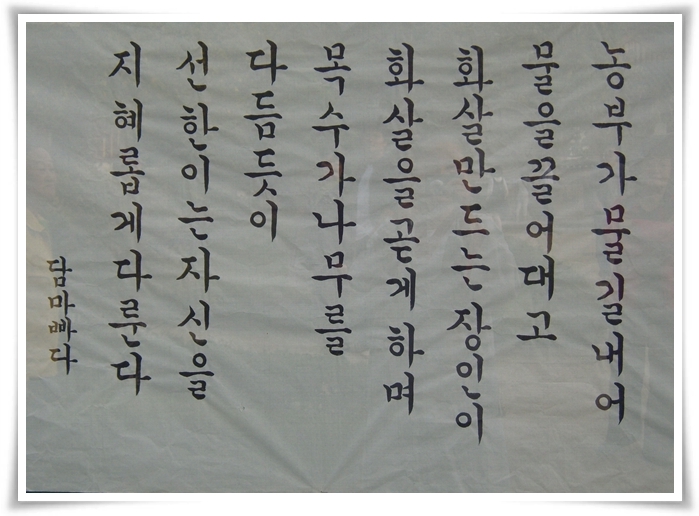 농부가물길내어
물을끌어대고
화살만드는장인이
화살을곧게하며
목수가나무를
다듬듯이
선한이는자신을
지혜롭게다룬다
담마빠다